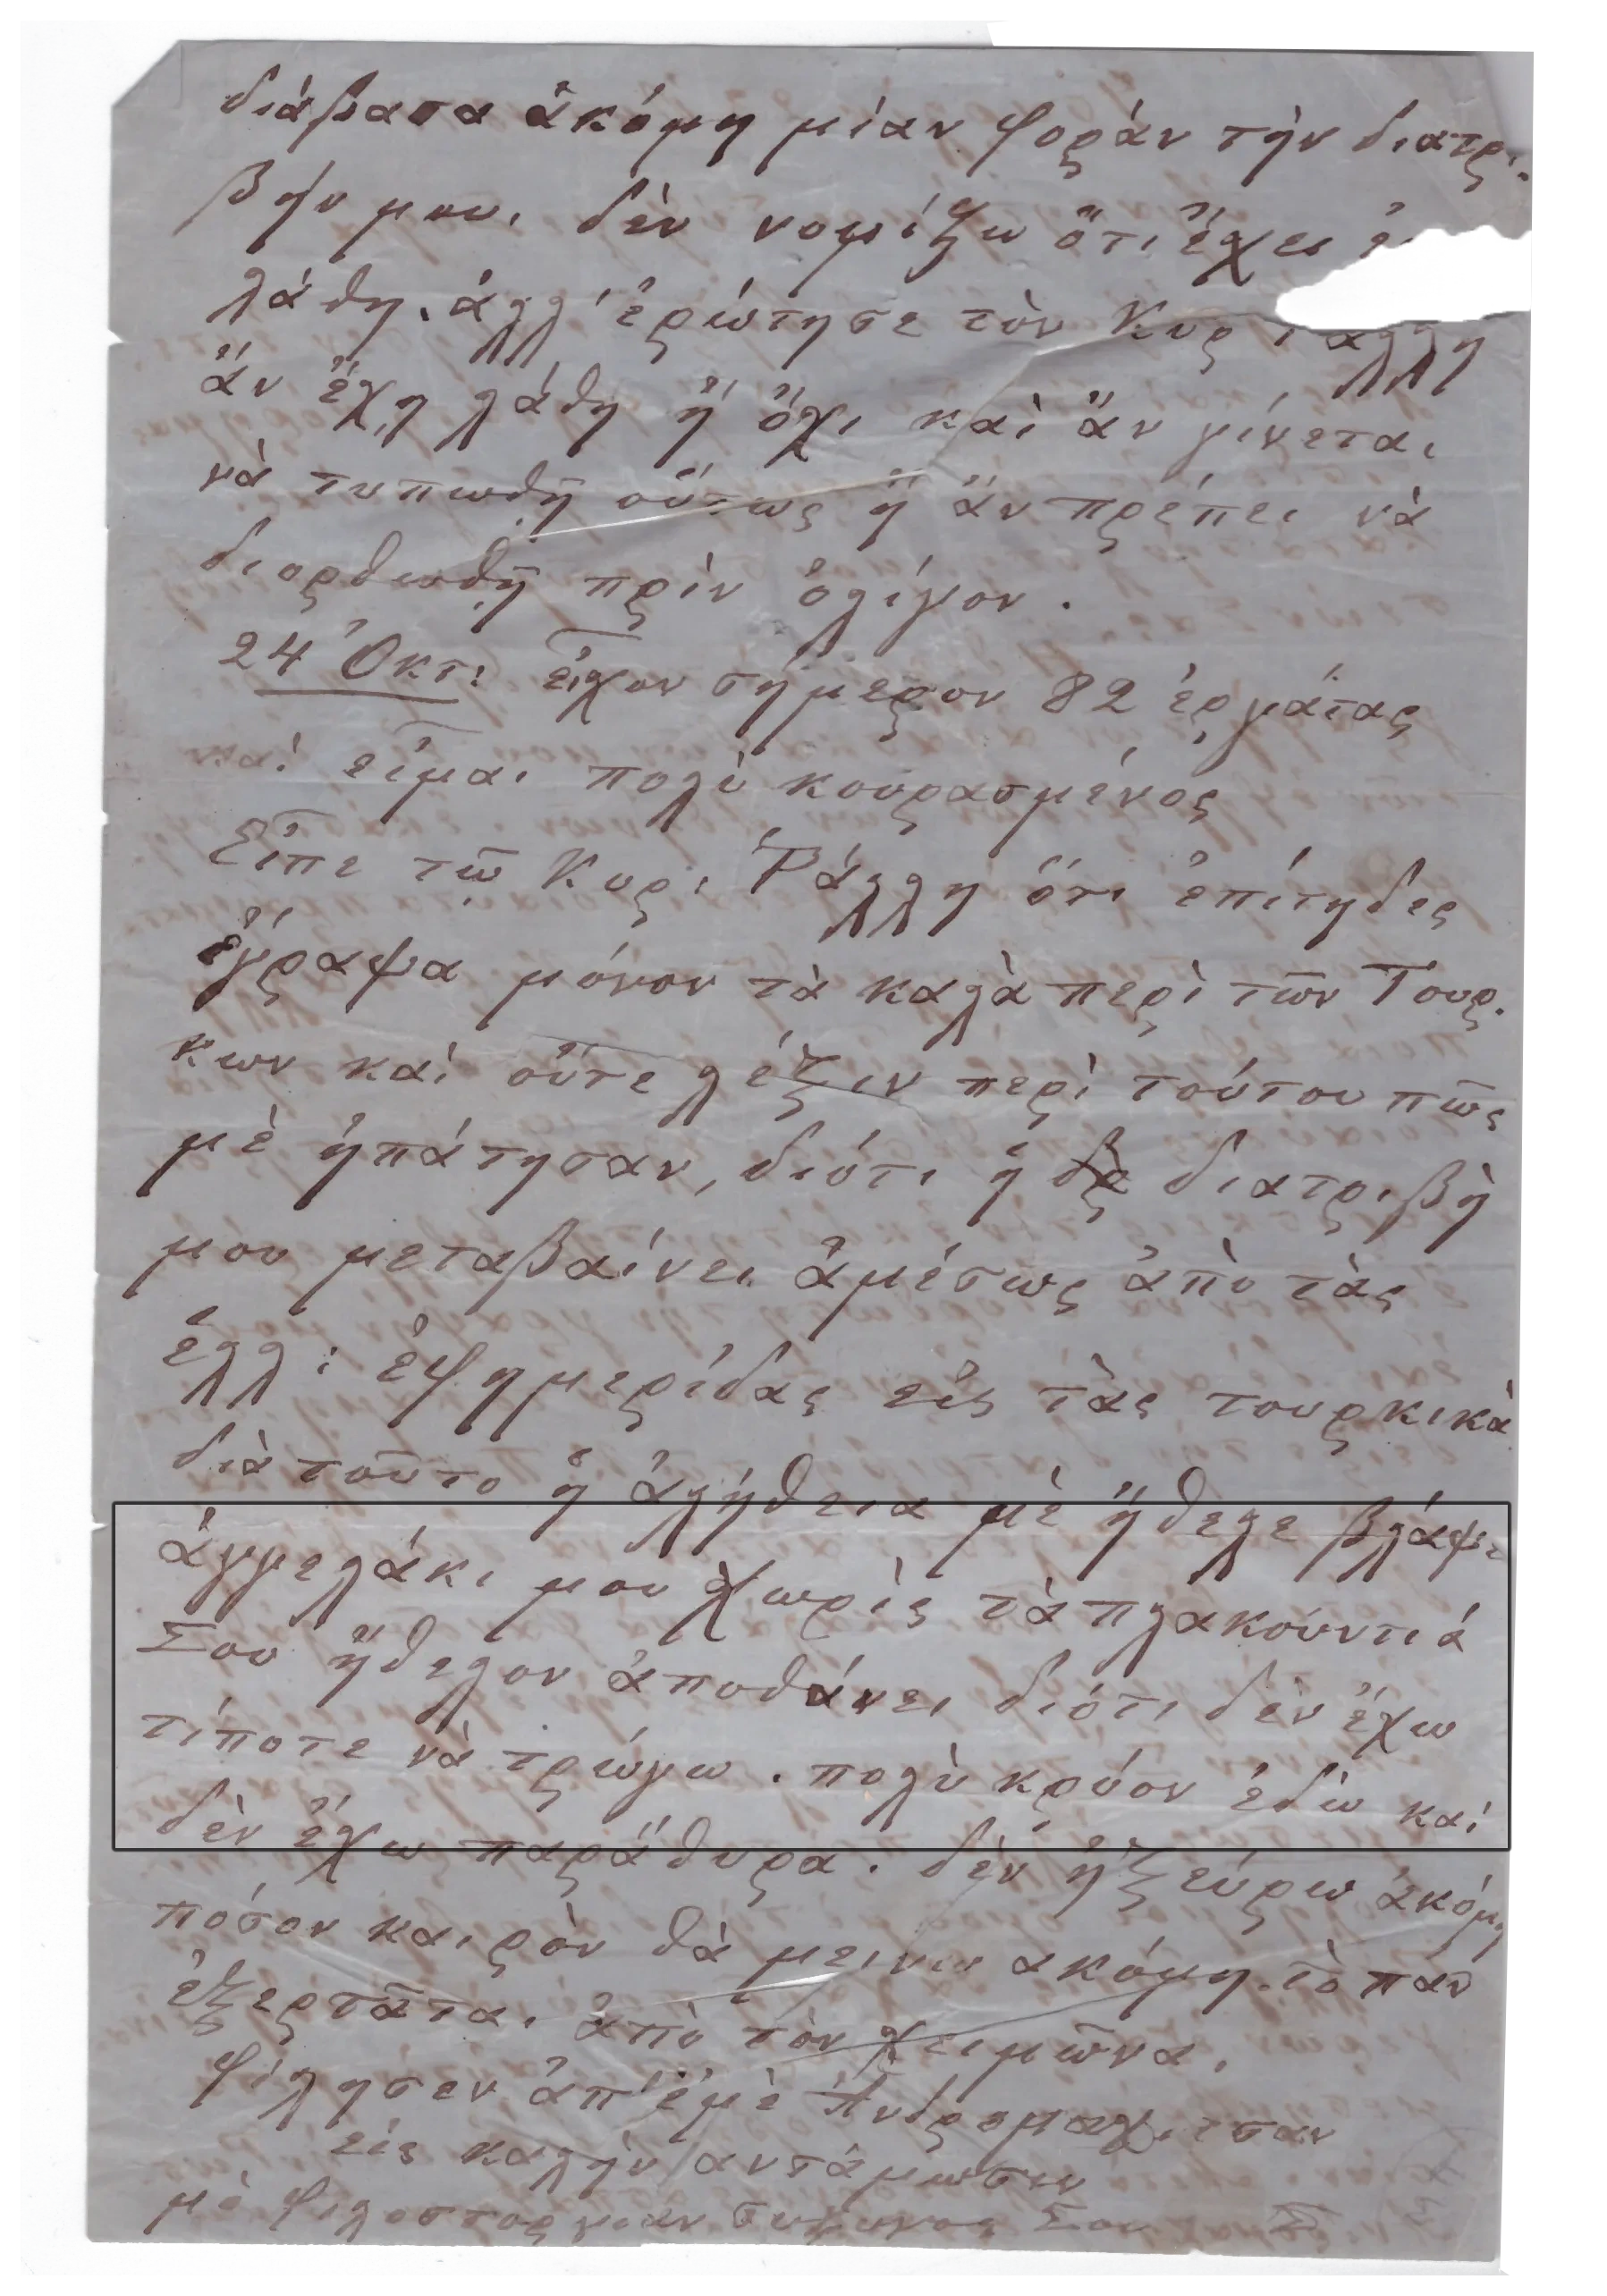 διάβασα ἀκόμη μίαν φορὰν τὴν διατρι-
βήν μου. δὲν νομίζω ὅτι ἔχει
λάθη. ἀλλ' ἐρώτησε τὸν Κυρ Ῥάλλη
ἄν ἔχῃ λάθη ἢ ὄχι καὶ ἄν γίνεται
νὰ τυπωθῇ οὕτως ἢ ἄν πρέπει νὰ
διορθωθῇ πρὶν ὀλίγον.
24 Ὀκτ: εἶχον σήμερον 82 ἐργάτας
καὶ εἶμαι πολὺ κουρασμένος
Εἶπε τῷ Κυρ: Ῥάλλη ὅτι ἐπίτηδες
ἔγραψα μόνον τὰ καλὰ περὶ τῶν Τουρ-
κων καὶ οὔτε λέξιν περὶ τούτου πῶς
μὲ ἠπάτησαν, διότι ἡ διατριβὴ
μου μεταβαίνει ἀμέσως ἀπὸ τὰς
ἑλλ: ἐφημερίδας εἰς τὰς τουρκικὰ
διὰ τοῦτο ἡ ἀλήθεια μὲ ἤθελε βλάψει
ἀγγελάκι μου χωρὶς τὰ πλακούντιά
Σου ἤθελον ἀποθάνει διότι δὲν ἔχω
τίποτε νὰ τρώγω. πολὺ κρύον ἐδῶ καὶ
δὲν ἔχω παράθυρα. δὲν ἠξεύρω ἀκόμη
πόσον καιρὸν θὰ μείνω ἀκόμη. τὸ πᾶν
ἐξερτᾶται ἀπὸ τὸν χειμῶνα.
φίλησεν ἀπ' ἐμὲ Ἀνδρομαχίτσαν
εἰς καλὴν ἀντάμωσιν
μὲ φιλοστοργίαν σύζυγος Σου